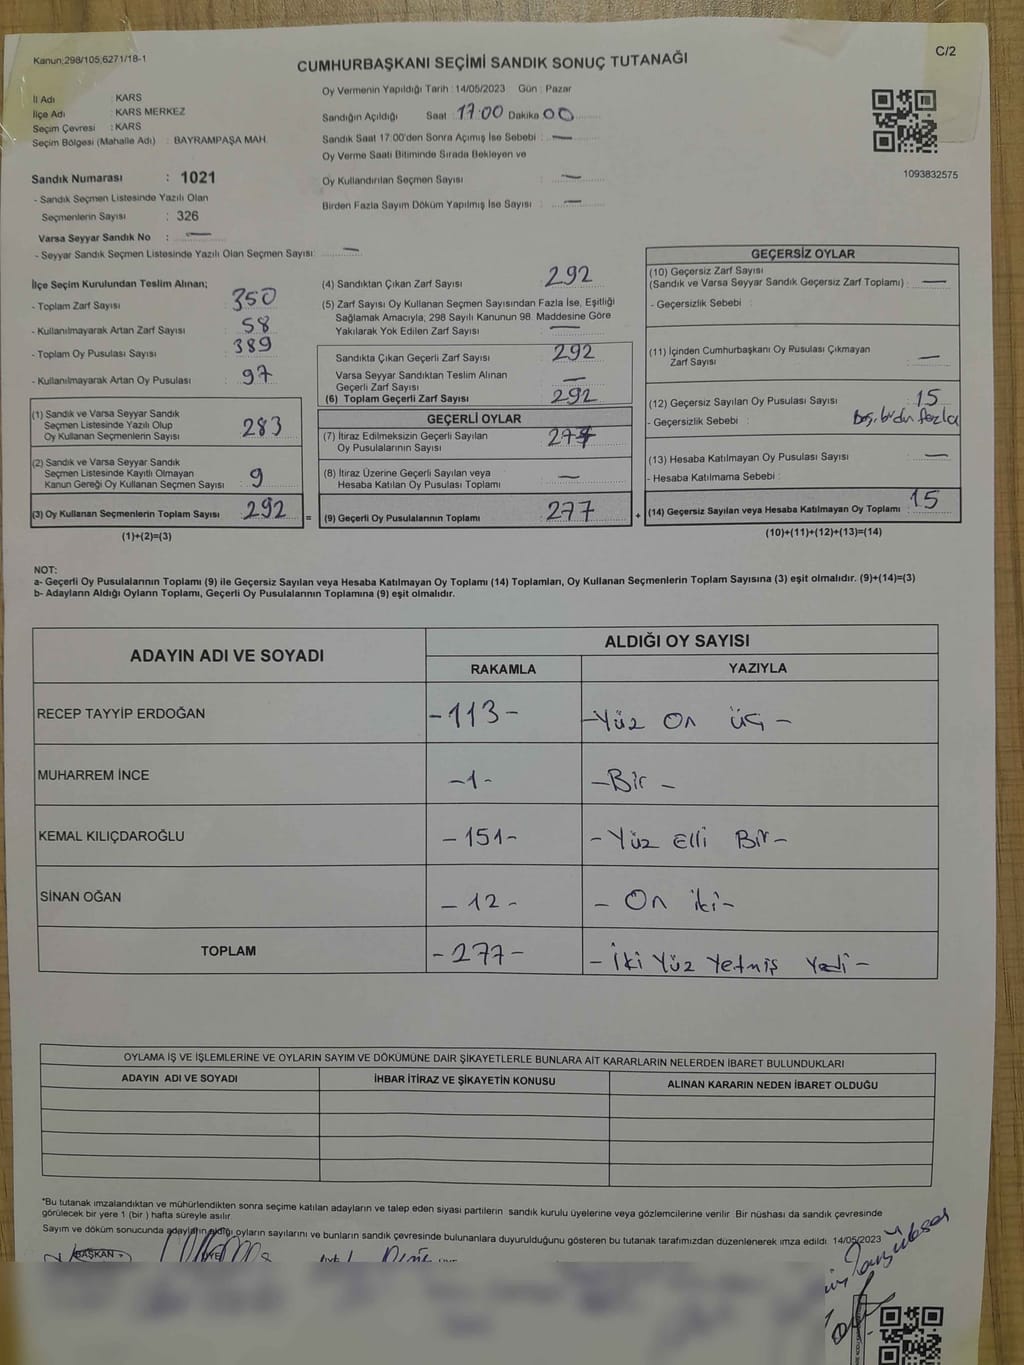 Kanun;298/105,6271/18-1
C/2
CUMHURBAŞKANI SEÇİMİ SANDIK SONUÇ TUTANAĞI
İl Adı : KARS
İlçe Adı : KARS MERKEZ
Seçim Çevresi : KARS
Seçim Bölgesi (Mahalle Adı) : BAYRAMPAŞA MAH.
Oy Vermenin Yapıldığı Tarih : 14/05/2023 Gün : Pazar
Sandığın Açıldığı Saat : 17:00 Dakika 00
Sandık Saat 17:00'den Sonra Açımış İse Sebebi : —
Oy Verme Saati Bitiminde Sırada Bekleyen ve
Oy Kullandırılan Seçmen Sayısı : —
Birden Fazla Sayım Döküm Yapılmış İse Sayısı : —
1093832575
Sandık Numarası : 1021
- Sandık Seçmen Listesinde Yazılı Olan
Seçmenlerin Sayısı : 326
Varsa Seyyar Sandık No : —
- Seyyar Sandık Seçmen Listesinde Yazılı Olan Seçmen Sayısı: —
İlçe Seçim Kurulundan Teslim Alınan;
- Toplam Zarf Sayısı : 350
- Kullanılmayarak Artan Zarf Sayısı : 58
- Toplam Oy Pusulası Sayısı : 389
- Kullanılmayarak Artan Oy Pusulası : 97
(1) Sandık ve Varsa Seyyar Sandık
Seçmen Listesinde Yazılı Olup
Oy Kullanan Seçmenlerin Sayısı : 283
(2) Sandık ve Varsa Seyyar Sandık
Seçmen Listesinde Kayıtlı Olmayan
Kanun Gereği Oy Kullanan Seçmen Sayısı : 9
(3) Oy Kullanan Seçmenlerin Toplam Sayısı : 292
(1)+(2)=(3)
=
(4) Sandıktan Çıkan Zarf Sayısı : 292
(5) Zarf Sayısı Oy Kullanan Seçmen Sayısından Fazla İse, Eşitliği
Sağlamak Amacıyla, 298 Sayılı Kanunun 98. Maddesine Göre
Yakılarak Yok Edilen Zarf Sayısı : —
Sandıkta Çıkan Geçerli Zarf Sayısı : 292
Varsa Seyyar Sandıktan Teslim Alınan
Geçerli Zarf Sayısı : —
(6) Toplam Geçerli Zarf Sayısı : 292
GEÇERLİ OYLAR
(7) İtiraz Edilmeksizin Geçerli Sayılan
Oy Pusulalarının Sayısı : 277
(8) İtiraz Üzerine Geçerli Sayılan veya
Hesaba Katılan Oy Pusulası Toplamı : —
(9) Geçerli Oy Pusulalarının Toplamı : 277
+
GEÇERSİZ OYLAR
(10) Geçersiz Zarf Sayısı
(Sandık ve Varsa Seyyar Sandık Geçersiz Zarf Toplamı) : —
- Geçersizlik Sebebi :
(11) İçinden Cumhurbaşkanı Oy Pusulası Çıkmayan
Zarf Sayısı : —
(12) Geçersiz Sayılan Oy Pusulası Sayısı : 15
- Geçersizlik Sebebi : Boş, birden fazla
(13) Hesaba Katılmayan Oy Pusulası Sayısı : —
- Hesaba Katılmama Sebebi :
(14) Geçersiz Sayılan veya Hesaba Katılmayan Oy Toplamı : 15
(10)+(11)+(12)+(13)=(14)
NOT:
a- Geçerli Oy Pusulalarının Toplamı (9) ile Geçersiz Sayılan veya Hesaba Katılmayan Oy Toplamı (14) Toplamları, Oy Kullanan Seçmenlerin Toplam Sayısına (3) eşit olmalıdır. (9)+(14)=(3)
b- Adayların Aldığı Oyların Toplamı, Geçerli Oy Pusulalarının Toplamına (9) eşit olmalıdır.
ADAYIN ADI VE SOYADI
ALDIĞI OY SAYISI
RAKAMLA YAZIYLA
RECEP TAYYİP ERDOĞAN -113- -Yüz On üç-
MUHARREM İNCE -1- -Bir-
KEMAL KILIÇDAROĞLU -151- -Yüz Elli Bir-
SİNAN OĞAN -12- -On iki-
TOPLAM -277- -İki Yüz Yetmiş Yedi-
OYLAMA İŞ VE İŞLEMLERİNE VE OYLARIN SAYIM VE DÖKÜMÜNE DAİR ŞİKAYETLERLE BUNLARA AİT KARARLARIN NELERDEN İBARET BULUNDUKLARI
ADAYIN ADI VE SOYADI İHBAR İTİRAZ VE ŞİKAYETİN KONUSU ALINAN KARARIN NEDEN İBARET OLDUĞU
*Bu tutanak imzalandıktan ve mühürlendikten sonra seçime katılan adayların ve talep eden siyasi partilerin sandık kurulu üyelerine veya gözlemcilerine verilir. Bir nüshası da sandık çevresinde
görülecek bir yere 1 (bir ) hafta süreyle asılır.
Sayım ve döküm sonucunda adayların aldığı oyların sayılarını ve bunların sandık çevresinde bulunanlara duyurulduğunu gösteren bu tutanak tarafımızdan düzenlenerek imza edildi. 14/05/2023
BAŞKAN ÜYE